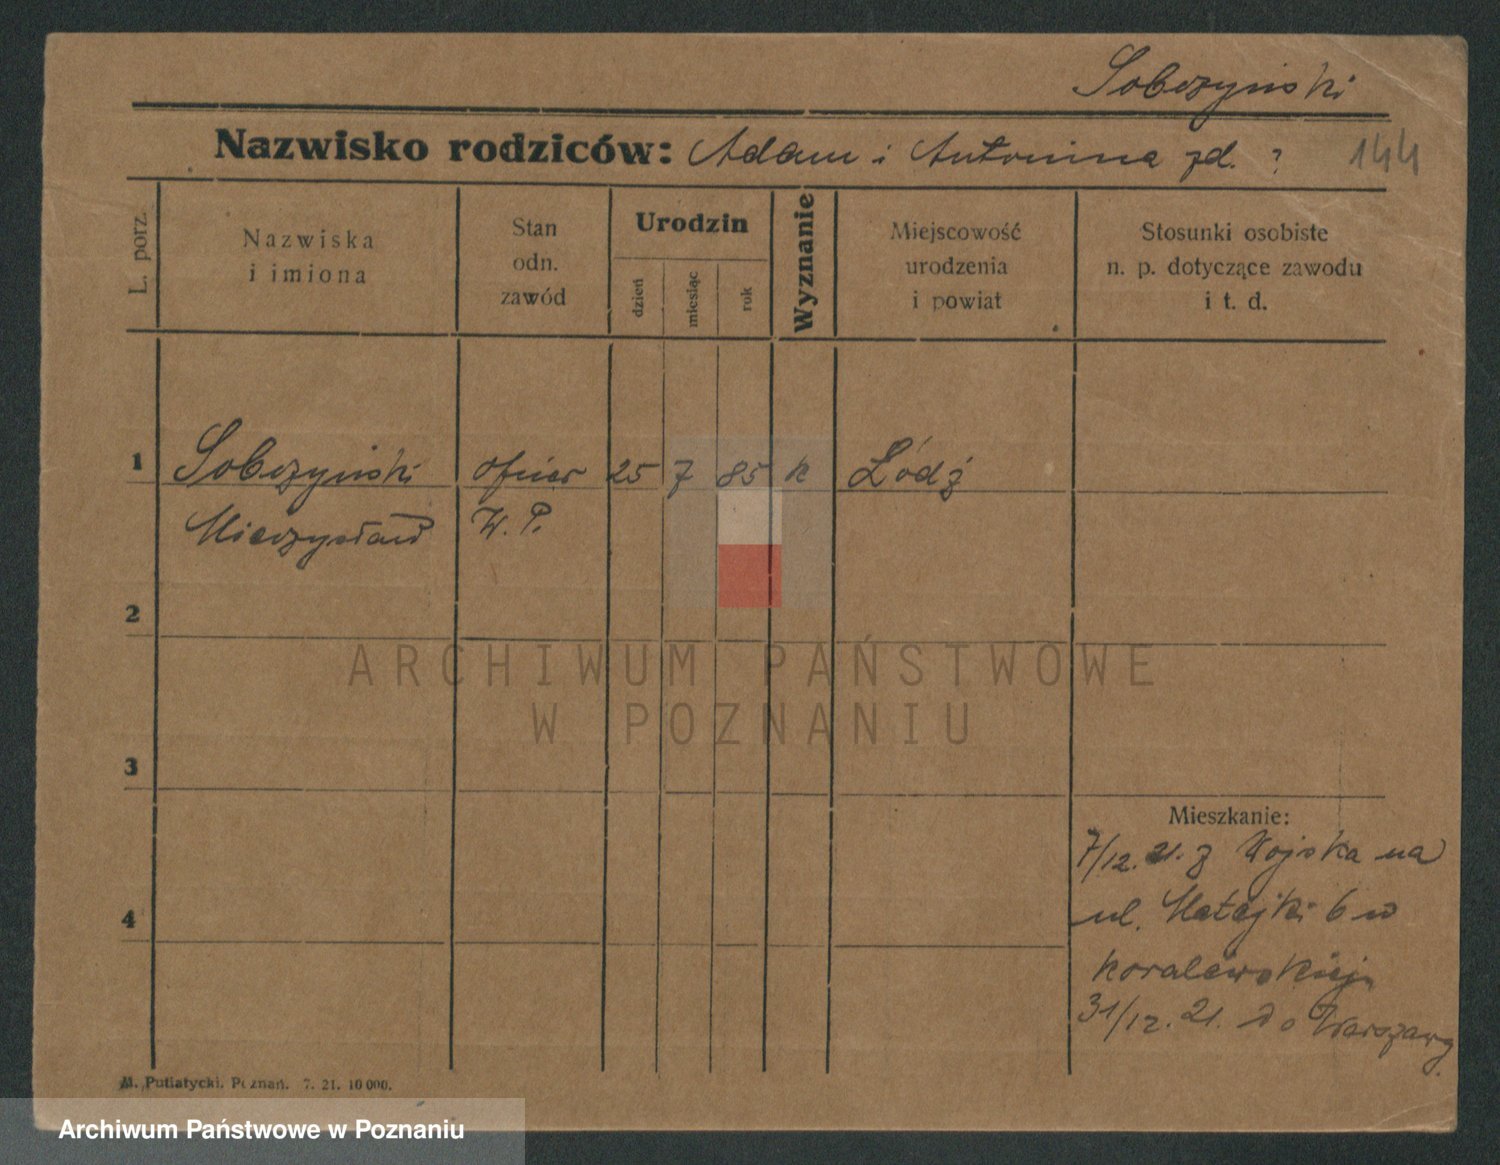 Sobczyński
Nazwisko rodziców: Adam i Antonina zd. ?
144
L. porz.
Nazwiska
i imiona
Stan
odn.
zawód
Urodzin
dzień
miesiąc
rok
Wyznanie
Miejscowość
urodzenia
i powiat
Stosunki osobiste
n. p. dotyczące zawodu
i t. d.
1
Sobczyński oficer 25 7 85 k Łódź
Mieczysław W. P.
2
ARCHIWUM PAŃSTWOWE
W POZNANIU
3
Mieszkanie:
7/12. 21. z Wojska na
ul. Matejki 6 w
4
Koralewskiej
31/12. 21. do Warszawy.
M. Putiatycki. Poznań. 7. 21. 10 000.
Archiwum Państwowe w Poznaniu